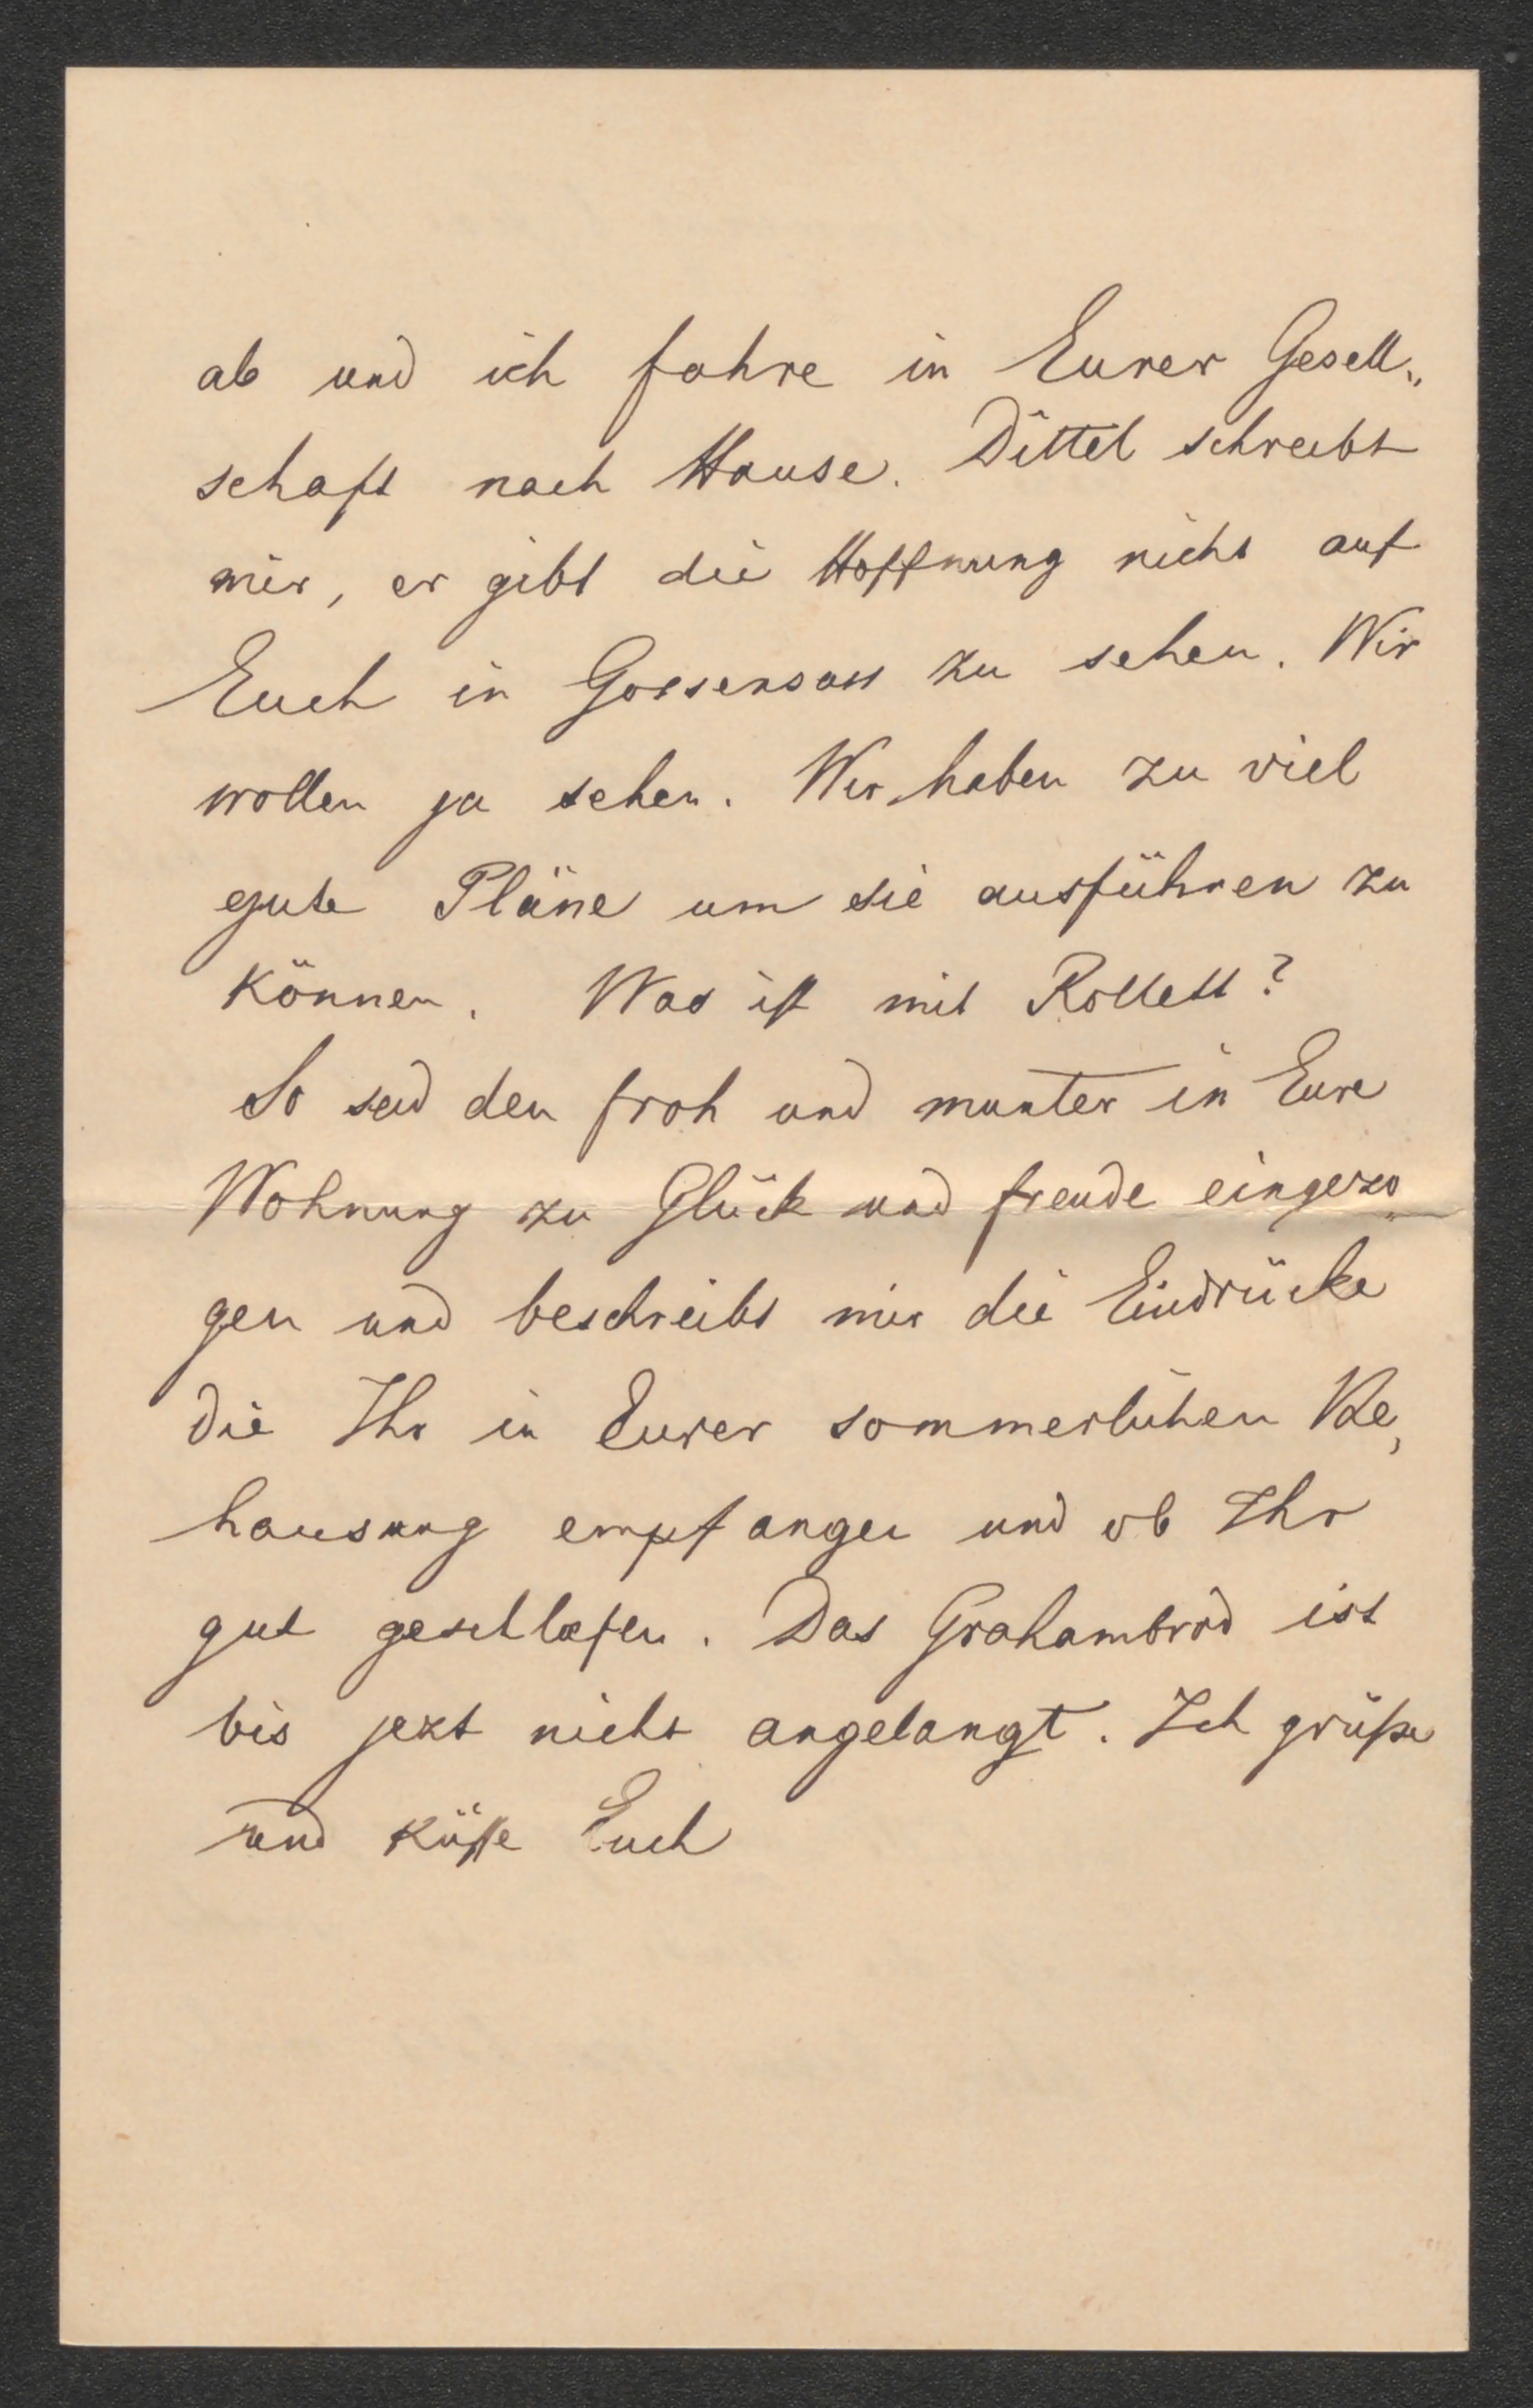 ab und ich fahre in Eurer Gesell„
schaft nach Hause. Dittel schreibt
mir, er gibt die Hoffnung nicht auf
Euch in Gossensass zu sehen. Wir
wollen ja sehen. Wir haben zu viel
gute Pläne um sie ausführen zu
können. Was ist mit Rollett?
So seid den froh und munter in Eure
Wohnung zu Glück und freude eingezo„
gen und beschreibt mir die Eindrücke
die Ihr in Eurer sommerlichen Be,
hausung empfangen und ob Ihr
gut geschlafen. Das Grahambrod ist
bis jezt nicht angelangt. Ich grüße
und küsse Euch